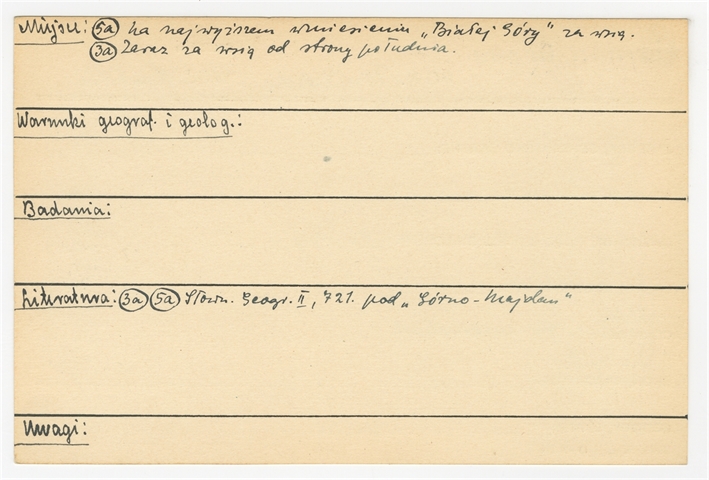 Miejsce: (5a) na najwyższem wzniesieniu „Białej Góry" za wsią.
(3a) Zaraz za wsią od strony południa.
Warunki geograf. i geolog.:
Badania:
Literatura: (3a) (5a) Słown. Geogr. II, 721. pod „Górno-Majdan"
Uwagi: